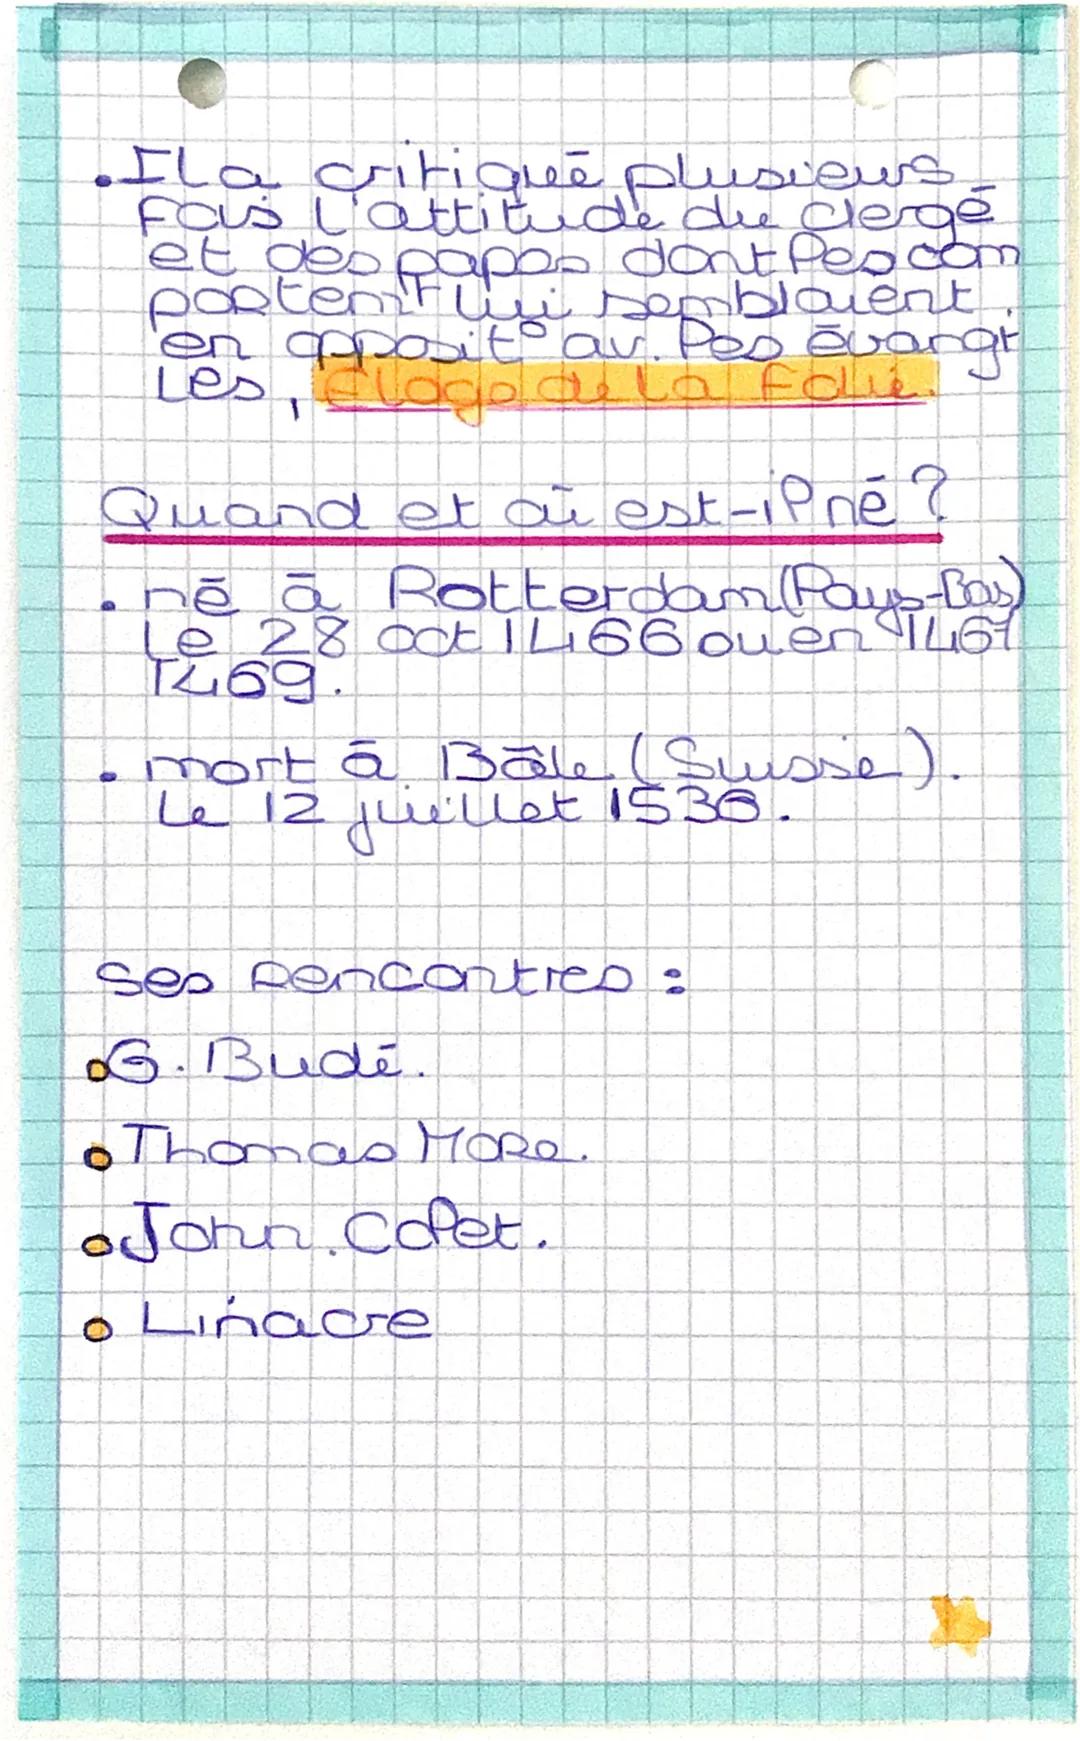 • Il a critiqué plusieurs
fois l'attitude du clergé
et des papes dont les com
portemt lui semblaient
en opposit° av. les évangi
les, Eloge de la Folie.
Quand et où est-il né ?
• né à Rotterdam (Pays-Bas)
le 28 oct 1466 ou en 1467
1469.
• mort à Bâle (Suisse).
Le 12 juillet 1536.
Ses rencontres :
• G. Budé.
• Thomas More.
• John. Colet.
• Linacre